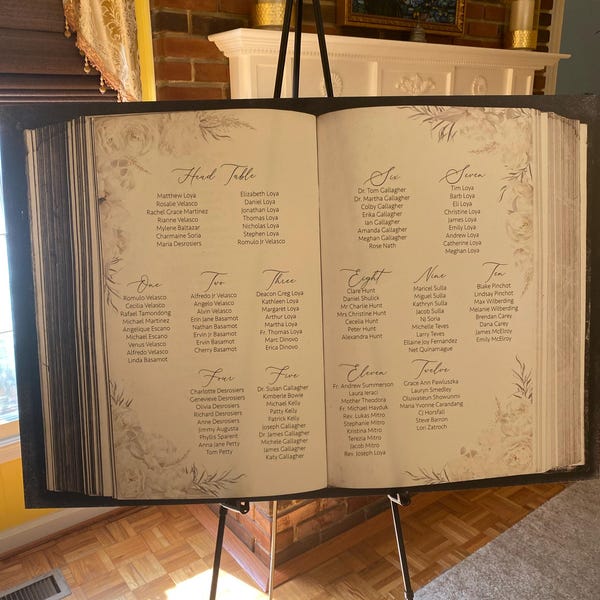 Head Table
Matthew Loya
Rosalie Velasco
Rachel Grace Martinez
Rianne Velasco
Mylene Baltazar
Charmaine Soria
Maria Desrosiers
Elizabeth Loya
Daniel Loya
Jonathan Loya
Thomas Loya
Nicholas Loya
Stephen Loya
Romulo Jr Velasco
One
Romulo Velasco
Cecilia Velasco
Rafael Tamondong
Michael Martinez
Angelique Escano
Michael Escano
Venus Velasco
Alfredo Velasco
Linda Basamot
Two
Alfredo Jr Velasco
Angelo Velasco
Alvin Velasco
Erin Jane Basamot
Nathan Basamot
Ervin Jr Basamot
Ervin Basamot
Cherry Basamot
Three
Deacon Greg Loya
Kathleen Loya
Margaret Loya
Arthur Loya
Martha Loya
Fr. Thomas Loya
Marc Dinovo
Erica Dinovo
Four
Charlotte Desrosiers
Genevieve Desrosiers
Olivia Desrosiers
Richard Desrosiers
Anne Desrosiers
Jimmy Augusta
Phyllis Sparent
Anna Jane Petty
Tom Petty
Five
Dr. Susan Gallagher
Kimberie Bowie
Michael Kelly
Patty Kelly
Patrick Kelly
Joseph Gallagher
Dr. James Gallagher
Michele Gallagher
James Gallagher
Katy Gallagher
Six
Dr. Tom Gallagher
Dr. Martha Gallagher
Colby Gallagher
Erika Gallagher
Ian Gallagher
Amanda Gallagher
Meghan Gallagher
Rose Nath
Seven
Tim Loya
Barb Loya
Eli Loya
Christine Loya
James Loya
Emily Loya
Andrew Loya
Catherine Loya
Meghan Loya
Eight
Clare Hunt
Daniel Shulick
Mr Charlie Hunt
Mrs Christine Hunt
Cecelia Hunt
Peter Hunt
Alexandra Hunt
Nine
Maricel Sulla
Miguel Sulla
Kathryn Sulla
Jacob Sulla
NJ Soria
Michelle Teves
Larry Teves
Ellaine Joy Fernandez
Net Quinamague
Ten
Blake Pinchot
Lindsay Pinchot
Max Wilberding
Melanie Wilberding
Brendan Carey
Dana Carey
James McElroy
Emily McElroy
Eleven
Fr. Andrew Summerson
Laura Ieraci
Mother Theodora
Fr. Michael Hayduk
Rev. Lukas Mitro
Stephanie Mitro
Kristina Mitro
Terezia Mitro
Jacob Mitro
Rev. Joseph Loya
Twelve
Grace Ann Pawluszka
Lauryn Smedley
Oluwaseun Showunmi
Maria Yvonne Carandang
CJ Horsfall
Steve Barron
Lori Zatroch